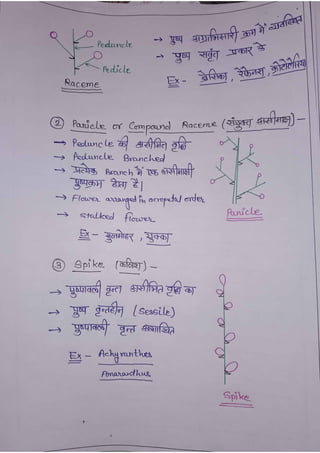 Peduncle
Pedicle
Raceme
→ पुष्प अग्राभिसारी क्रम में व्यवस्थित
→ पुष्प सवृंत प्रकार के
Ex- ब्रेसिका, रैफेनस, क्रोटोलेरिया
② Panicle or Compound Raceme (संयुक्त असीमाक्ष) -
→ Peduncle की असीमित वृद्धि
→ Peduncle Branched
→ प्रत्येक Branch में एक असीमाक्षी
पुष्पक्रम होता है।
→ Flower arranged in acropetal order
→ stalked flower
Ex - गुलमोहर, युक्का
Panicle
③ Spike (कणिश) -
→ पुष्पावली वृन्त असीमित वृद्धि का
→ पुष्प वृन्तहीन (Sessile)
→ पुष्पावली वृन्त अशाखित
Ex - Achyranthes
Amaranthus
Spike